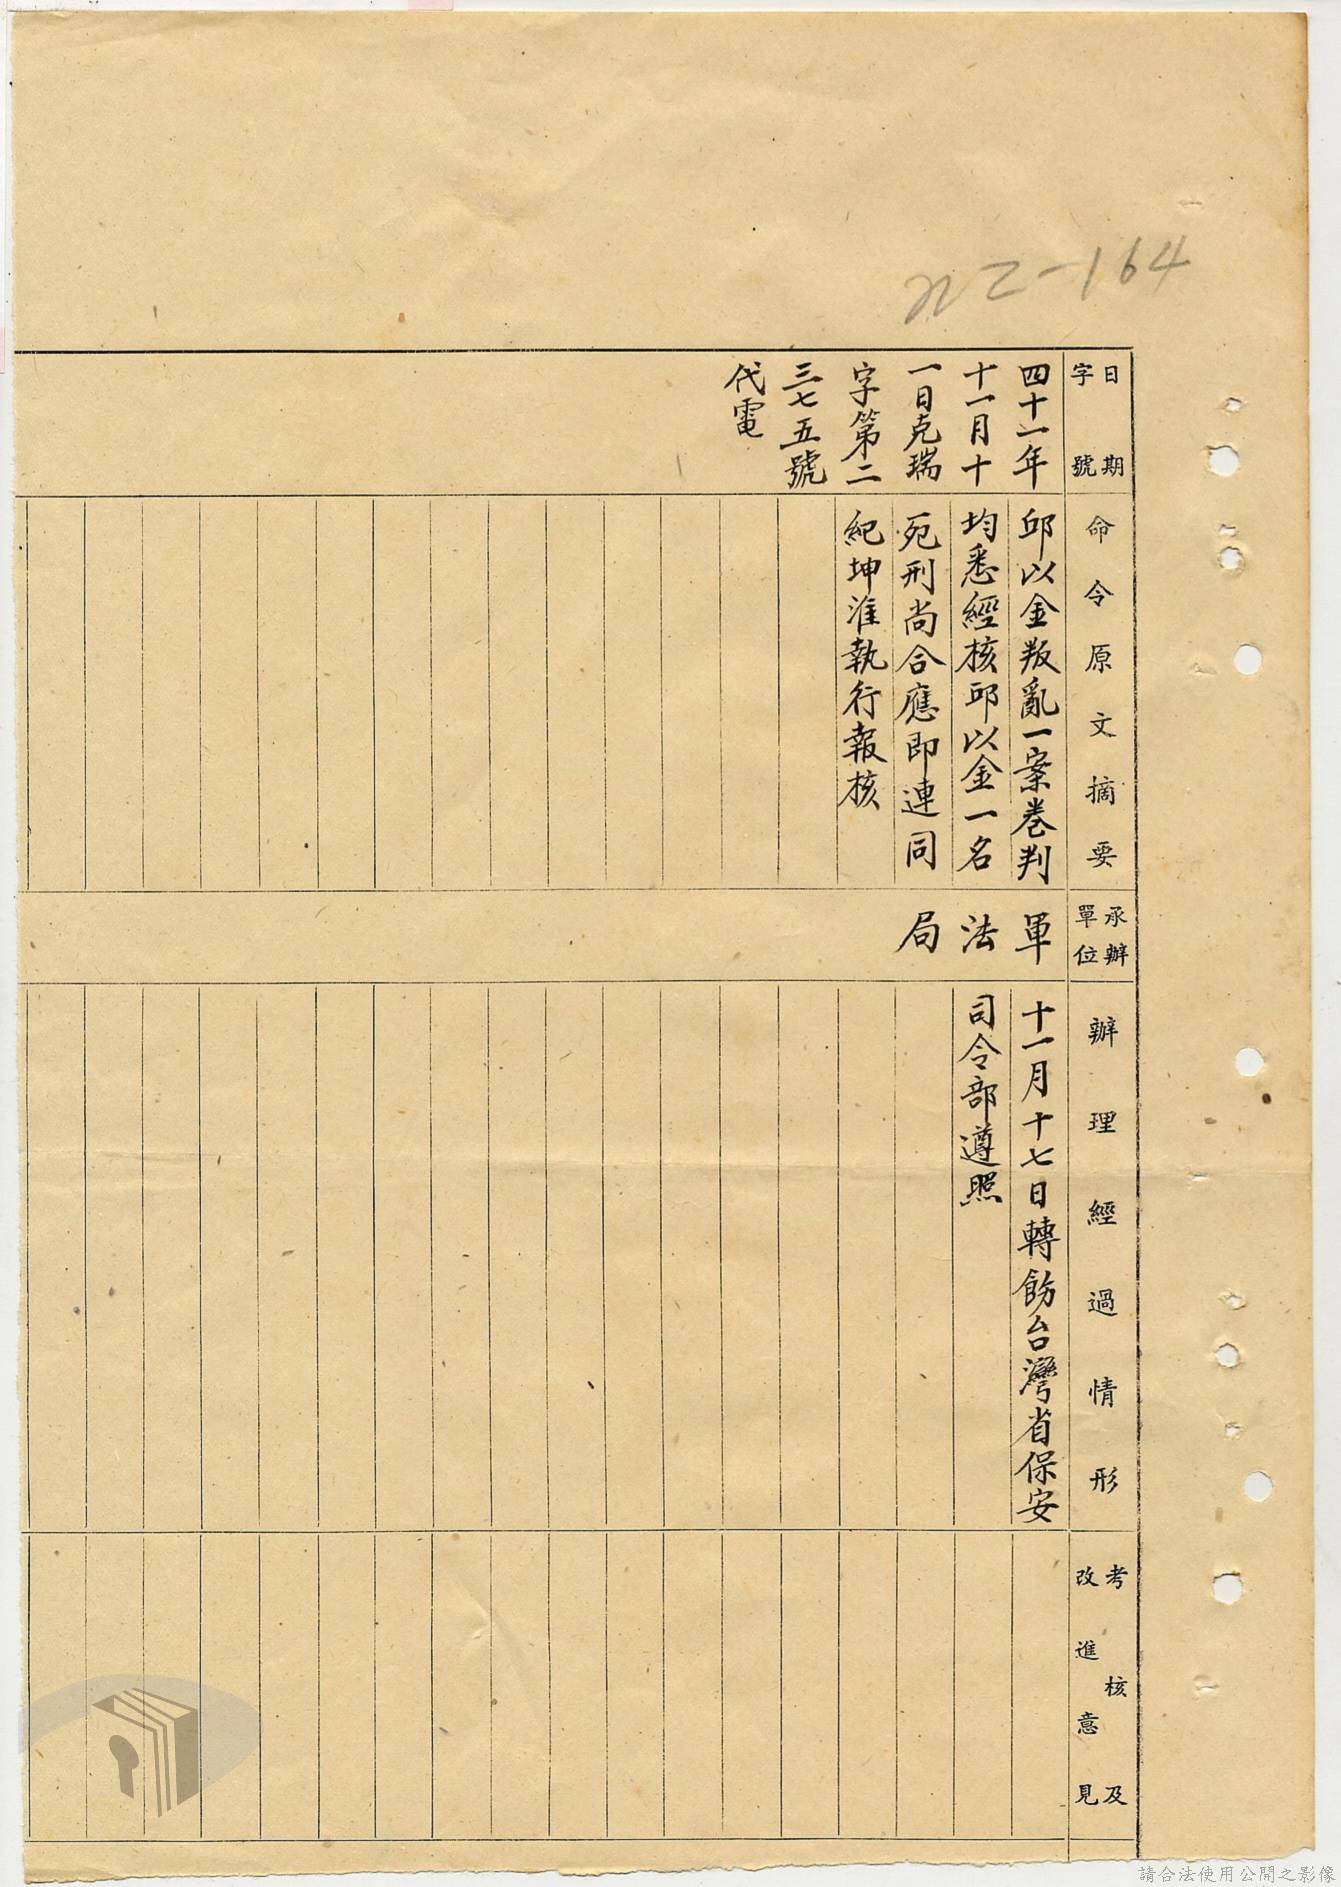 日期
字號
四十一年
十一月十
一日克瑞
字第二
三七五號
代電
命令原文摘要
邱以金叛亂一案卷判
均悉經核邱以金一名
死刑尚合應即連同
紀坤淮執行報核
承辦
單位
軍
法
局
辦理經過情形
十一月十七日轉飭台灣省保安
司令部遵照
考核及
改進意見
請合法使用公開之影像